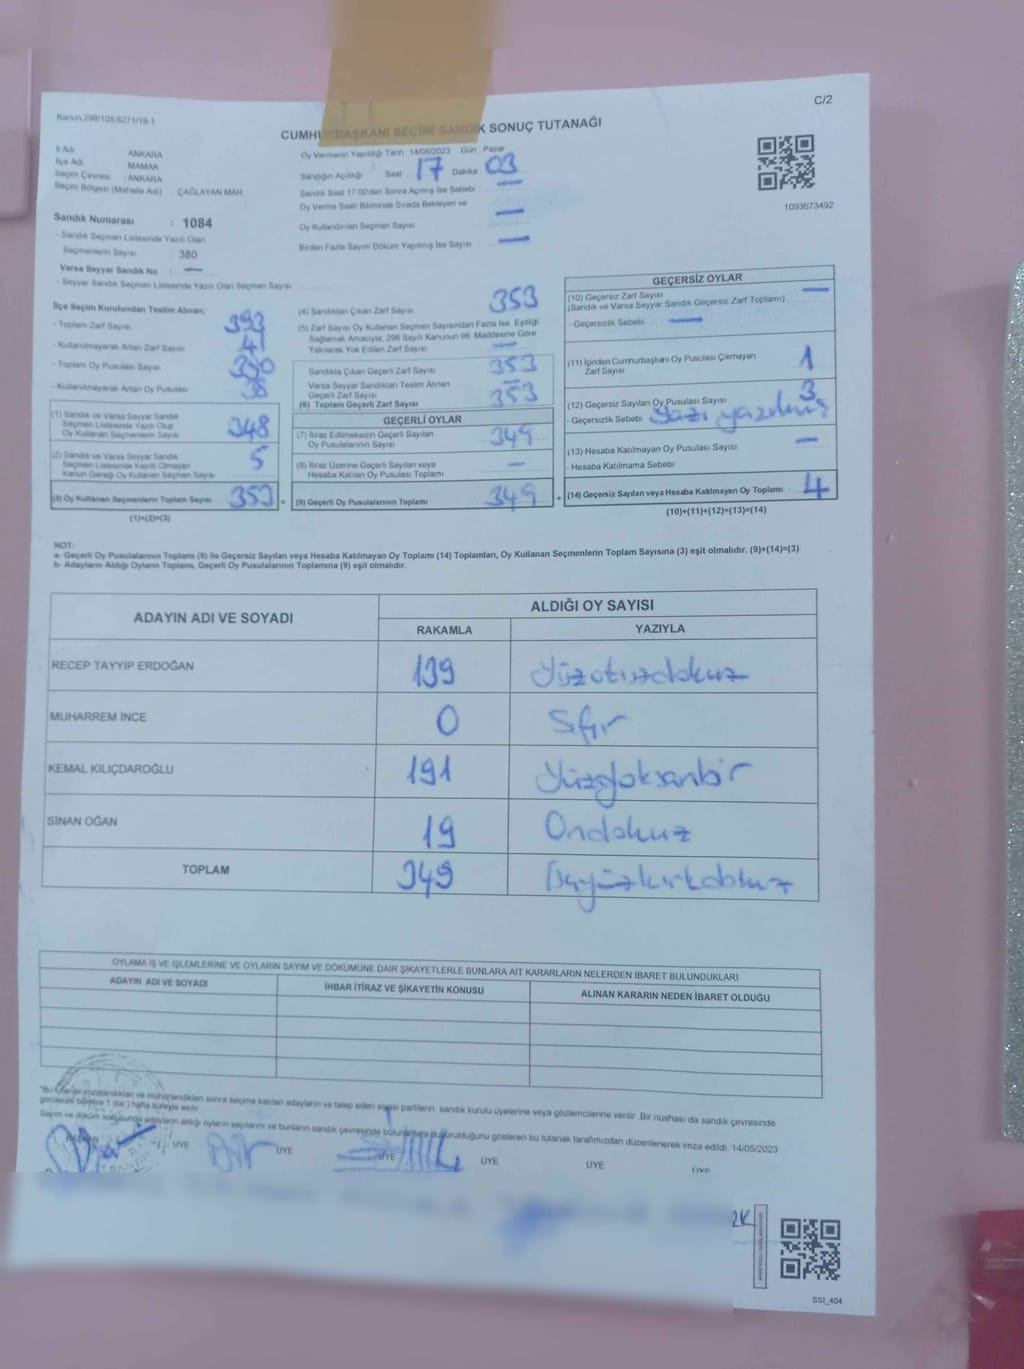 C/2
Kanun,298/105,6271/18-1
CUMHURBAŞKANI SEÇİMİ SANDIK SONUÇ TUTANAĞI
İl Adı ANKARA
İlçe Adı MAMAK
Seçim Çevresi : ANKARA
Seçim Bölgesi (Mahalle Adı) ÇAĞLAYAN MAH
Oy Vermenin Yapıldığı Tarih 14/05/2023 Gün Pazar
Sandığın Açıldığı Saat 17 Dakika 03
Sandık Saat 17:00'den Sonra Açılmış İse Sebebi —
Oy Verme Saati Bitiminde Sırada Bekleyen ve
Oy Kullandırılan Seçmen Sayısı —
Birden Fazla Sayım Döküm Yapılmış İse Sayısı —
1093673492
Sandık Numarası : 1084
- Sandık Seçmen Listesinde Yazılı Olan
Seçmenlerin Sayısı : 380
Varsa Seyyar Sandık No : —
- Seyyar Sandık Seçmen Listesinde Yazılı Olan Seçmen Sayısı
İlçe Seçim Kurulundan Teslim Alınan;
- Toplam Zarf Sayısı 393
- Kullanılmayarak Artan Zarf Sayısı 41
- Toplam Oy Pusulası Sayısı
- Kullanılmayarak Artan Oy Pusulası 38
(1) Sandık ve Varsa Seyyar Sandık
Seçmen Listesinde Yazılı Olup
Oy Kullanan Seçmenlerin Sayısı 348
(2) Sandık ve Varsa Seyyar Sandık
Seçmen Listesinde Kayıtlı Olmayan
Kanun Gereği Oy Kullanan Seçmen Sayısı 5
(3) Oy Kullanan Seçmenlerin Toplam Sayısı 353
(1)+(2)=(3)
(4) Sandıktan Çıkan Zarf Sayısı 353
(5) Zarf Sayısı Oy Kullanan Seçmen Sayısından Fazla İse, Eşitliği
Sağlamak Amacıyla, 298 Sayılı Kanunun 98. Maddesine Göre
Yakılarak Yok Edilen Zarf Sayısı —
Sandıkta Çıkan Geçerli Zarf Sayısı 353
Varsa Seyyar Sandıktan Teslim Alınan
Geçerli Zarf Sayısı —
(6) Toplam Geçerli Zarf Sayısı 353
GEÇERLİ OYLAR
(7) İtiraz Edilmeksizin Geçerli Sayılan
Oy Pusulalarının Sayısı 349
(8) İtiraz Üzerine Geçerli Sayılan veya
Hesaba Katılan Oy Pusulası Toplamı —
= (9) Geçerli Oy Pusulalarının Toplamı 349
GEÇERSİZ OYLAR
(10) Geçersiz Zarf Sayısı —
(Sandık ve Varsa Seyyar Sandık Geçersiz Zarf Toplamı)
- Geçersizlik Sebebi —
(11) İçinden Cumhurbaşkanı Oy Pusulası Çıkmayan
Zarf Sayısı 1
(12) Geçersiz Sayılan Oy Pusulası Sayısı 3
- Geçersizlik Sebebi Yazı yazılmış
(13) Hesaba Katılmayan Oy Pusulası Sayısı —
- Hesaba Katılmama Sebebi
+ (14) Geçersiz Sayılan veya Hesaba Katılmayan Oy Toplamı : 4
(10)+(11)+(12)+(13)=(14)
NOT:
a- Geçerli Oy Pusulalarının Toplamı (9) ile Geçersiz Sayılan veya Hesaba Katılmayan Oy Toplamı (14) Toplamları, Oy Kullanan Seçmenlerin Toplam Sayısına (3) eşit olmalıdır. (9)+(14)=(3)
b- Adayların Aldığı Oyların Toplamı, Geçerli Oy Pusulalarının Toplamına (9) eşit olmalıdır.
ADAYIN ADI VE SOYADI ALDIĞI OY SAYISI
RAKAMLA YAZIYLA
RECEP TAYYİP ERDOĞAN 139 Yüzotuzdokuz
MUHARREM İNCE 0 Sıfır
KEMAL KILIÇDAROĞLU 191 Yüzdoksanbir
SİNAN OĞAN 19 Ondokuz
TOPLAM 349
OYLAMA İŞ VE İŞLEMLERİNE VE OYLARIN SAYIM VE DÖKÜMÜNE DAİR ŞİKAYETLERLE BUNLARA AİT KARARLARIN NELERDEN İBARET BULUNDUKLARI
ADAYIN ADI VE SOYADI İHBAR İTİRAZ VE ŞİKAYETİN KONUSU ALINAN KARARIN NEDEN İBARET OLDUĞU
"Bu tutanak imzalandıktan ve mühürlendikten sonra seçime katılan adayların ve talep eden siyasi partilerin sandık kurulu üyelerine veya gözlemcilerine verilir. Bir nüshası da sandık çevresinde
görülecek bir yere 1 (bir) hafta süreyle asılır
Sayım ve döküm sonucunda adayların aldığı oyların sayılarını ve bunların sandık çevresinde bulunanlara duyurulduğunu gösteren bu tutanak tarafımızdan düzenlenerek imza edildi. 14/05/2023
BAŞKAN ÜYE ÜYE ÜYE ÜYE ÜYE ÜYE
SSI_404